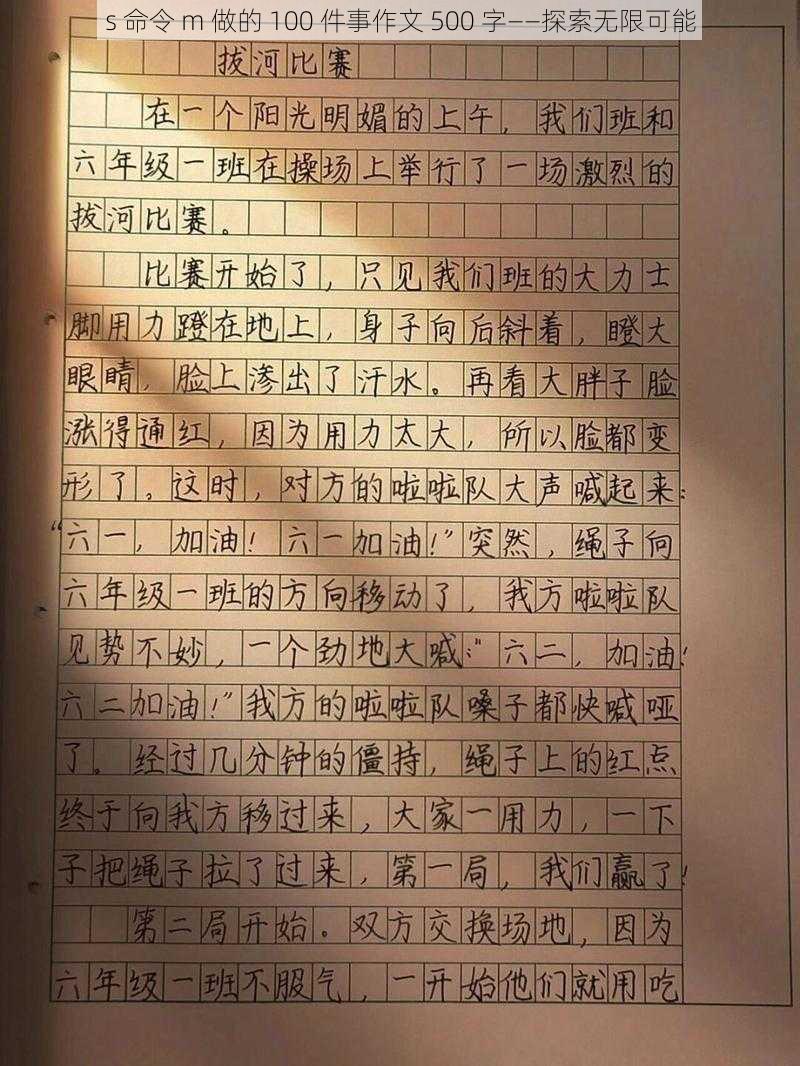 s 命令 m 做的 100 件事作文 500 字——探索无限可能
拔河比赛
在一个阳光明媚的上午，我们班和
六年级一班在操场上举行了一场激烈的
拔河比赛。
比赛开始了，只见我们班的大力士
脚用力蹬在地上，身子向后斜着，瞪大
眼睛，脸上渗出了汗水。再看大胖子脸
涨得通红，因为用力太大，所以脸都变
形了。这时，对方的啦啦队大声喊起来：
“六一，加油！六一加油！”突然，绳子向
六年级一班的方向移动了，我方啦啦队
见势不妙，一个劲地大喊：“六二，加油！
六二加油！”我方的啦啦队嗓子都快喊哑
了。经过几分钟的僵持，绳子上的红点
终于向我方移过来，大家一用力，一下
子把绳子拉了过来，第一局，我们赢了！
第二局开始。双方交换场地，因为
六年级一班不服气，一开始他们就用吃